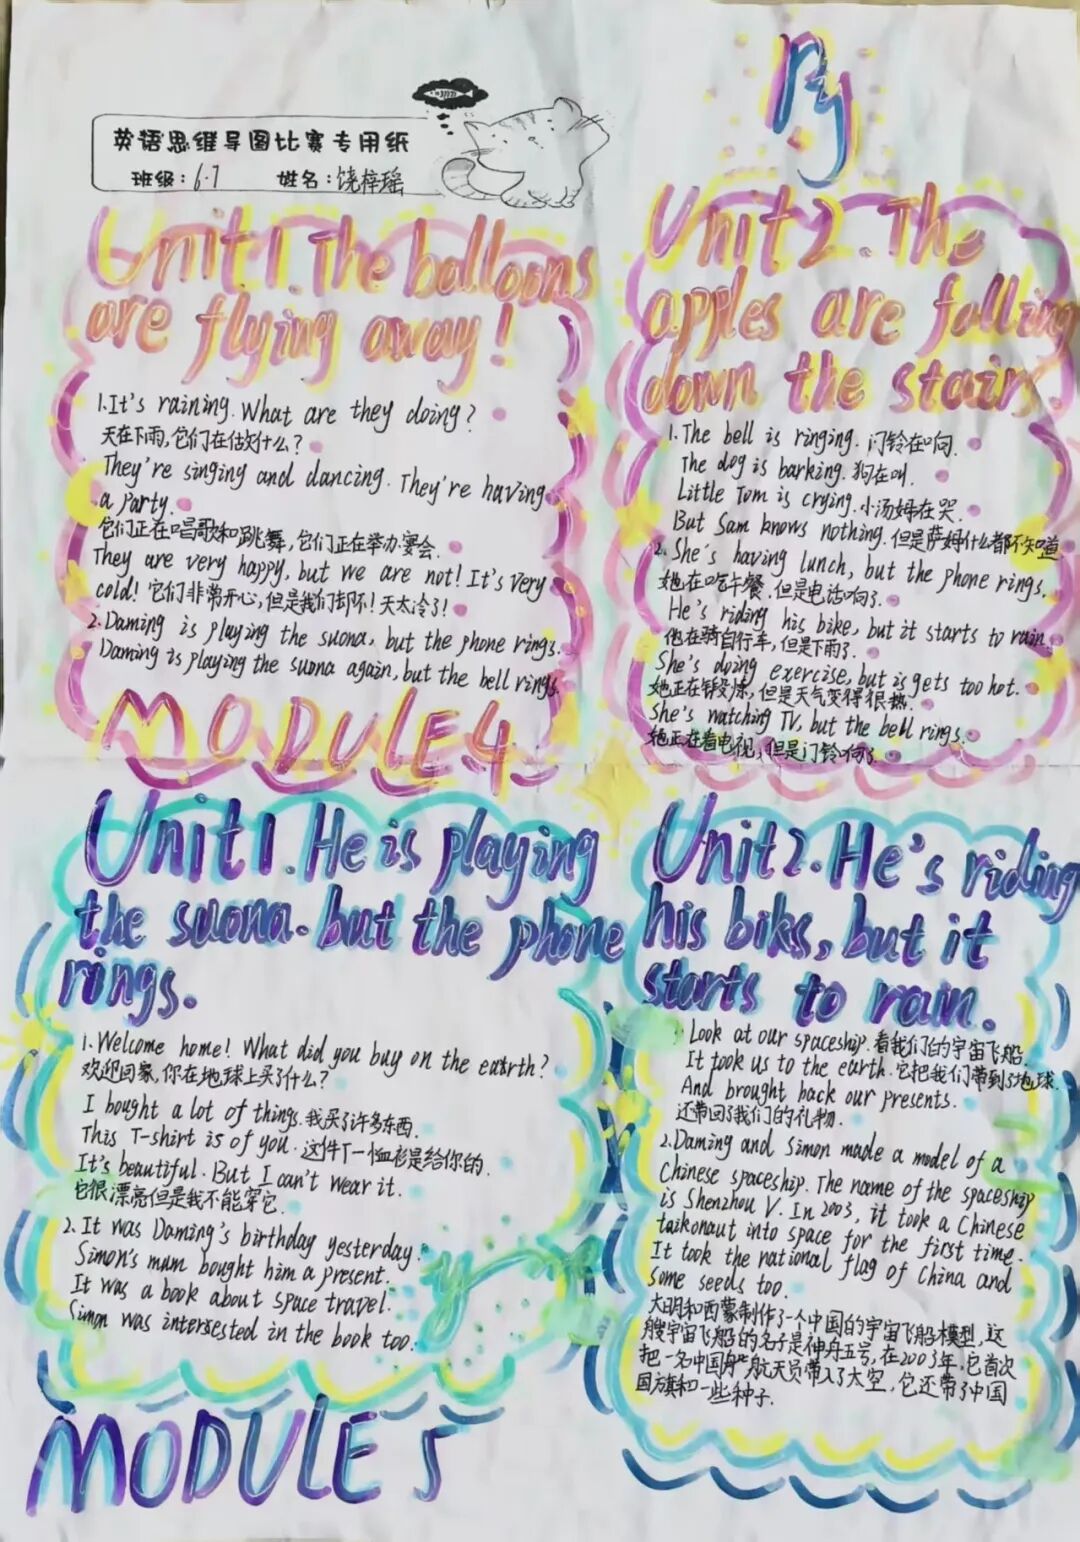 英语思维导图比赛专用纸
班级:6.7 姓名:饶梓瑶
Unit1.The balloons
are flying away!
1.It's raining. What are they doing?
天在下雨,它们在做什么?
They're singing and dancing. They're having
a party.
它们正在唱歌和跳舞,它们正在举办宴会.
They are very happy, but we are not! It's very
cold! 它们非常开心,但是我们却不!天太冷了!
2.Daming is playing the suona, but the phone rings.
Daming is playing the suona again, but the bell rings.
MODULE4
Unit2.The
apples are falling
down the stairs
1.The bell is ringing. 门铃在响.
The dog is barking. 狗在叫.
Little Tom is crying. 小汤姆在哭.
But Sam knows nothing. 但是萨姆什么都不知道
2.She's having lunch, but the phone rings.
她在吃午餐,但是电话响了.
He's riding his bike, but it starts to rain.
他在骑自行车,但是下雨了.
She's doing exercise, but is gets too hot.
她正在锻炼,但是天气变得很热.
She's watching TV, but the bell rings.
她正在看电视,但是门铃响了.
Unit1.He is playing
the suona. but the phone
rings.
1.Welcome home! What did you buy on the earth?
欢迎回家,你在地球上买了什么?
I bought a lot of things. 我买了许多东西.
This T-shirt is of you. 这件T一恤衫是给你的.
It's beautiful. But I can't wear it.
它很漂亮但是我不能穿它.
2.It was Daming's birthday yesterday.
Simon's mum bought him a present.
It was a book about space travel.
Simon was intersested in the book too.
MODULE 5
Unit2.He's riding
his biks, but it
starts to rain.
1 Look at our spaceship. 看我们的宇宙飞船.
It took us to the earth. 它把我们带到了地球.
And brought back our presents.
还带回了我们的礼物.
2.Daming and Simon made a model of a
Chinese spaceship. The name of the spaceship
is Shenzhou V. In 2003, it took a Chinese
taikonaut into space for the first time.
It took the national flag of China and
some seeds too.
大明和西蒙制作了一个中国的宇宙飞船模型,这
艘宇宙飞船的名字是神舟五号,在2003年,它首次
把一名中国航天员带入了太空,它还带了中国
国旗和一些种子.